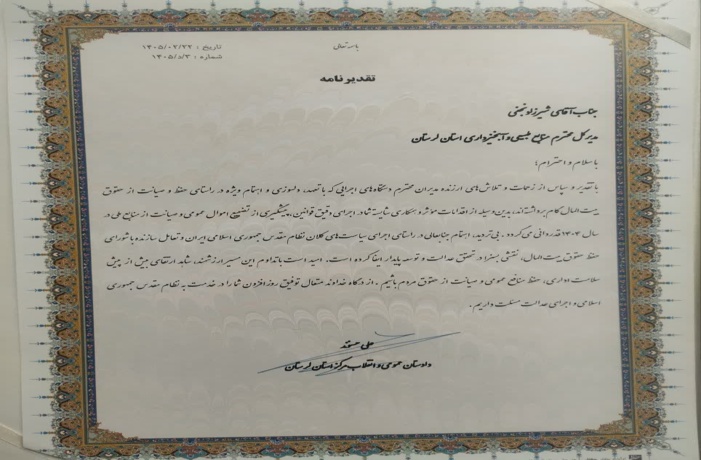 باسمه تعالی
تاریخ : ۱۴۰۵/۰۲/۲۲
شماره : ۱۴۰۵/۸/۳
تقدیرنامه
جناب آقای شیرزاد نجفی
مدیر کل محترم منابع طبیعی و آبخیزداری استان لرستان
با سلام و احترام؛
با تقدیر و سپاس از زحمات و تلاش‌های ارزنده مدیران محترم دستگاه‌های اجرایی که با تعهد، دلسوزی و اهتمام ویژه در راستای حفظ و صیانت از حقوق
بیت‌المال گام برداشته‌اند، بدین وسیله از اقدامات مؤثر و همکاری شایسته شما در اجرای دقیق قوانین، پیشگیری از تضییع اموال عمومی و صیانت از منابع ملی در
سال ۱۴۰۴ قدردانی می‌گردد. بی‌تردید، اهتمام جنابعالی در راستای اجرای سیاست‌های کلان نظام مقدس جمهوری اسلامی ایران و تعامل سازنده با شورای
حفظ حقوق بیت‌المال، نقشی بسزا در تحقق عدالت و توسعه پایدار ایفا کرده است. امید است با تداوم این مسیر ارزشمند، شاهد ارتقای بیش از پیش
سلامت اداری، حفظ منافع عمومی و صیانت از حقوق مردم باشیم. از درگاه خداوند متعال توفیق روزافزون شما را در خدمت به نظام مقدس جمهوری
اسلامی و اجرای عدالت مسئلت داریم.
علی حسنوند
دادستان عمومی و انقلاب مرکز استان لرستان